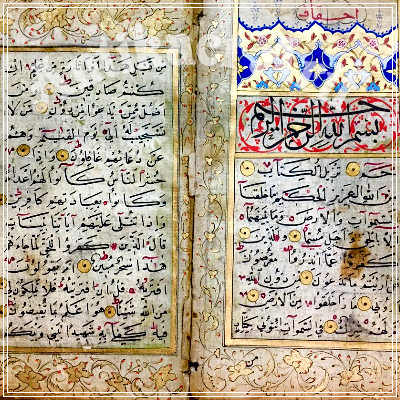 احقاف
بسم الله الرحمن الرحيم
حم تنزيل الكتاب
من الله العزيز الحكيم ما خلقنا
السموات والارض وما بينهما
الا بالحق واجل مسمى والذين
كفروا عما انذروا معرضون
قل ارايتم ما تدعون من دون الله
اروني ماذا خلقوا من الارض ام لهم
شرك في السموات ايتوني بكتاب
من
من قبل هذا او اثارة من علم ان
كنتم صادقين ومن
اضل ممن يدعوا من دون الله من لا
يستجيب له الى يوم القيمة وهم
عن دعائهم غافلون واذا
حشر الناس كانوا لهم اعداء
وكانوا بعبادتهم كافرين
واذا تتلى عليهم اياتنا بينات
قال الذين كفروا للحق لما جاءهم
هذا سحر مبين ام يقولون
افتريه قل ان افتريته فلا تملكون لي
من الله شيئا هو اعلم بما تفيضون
فيه كفى به شهيدا بيني وبينكم